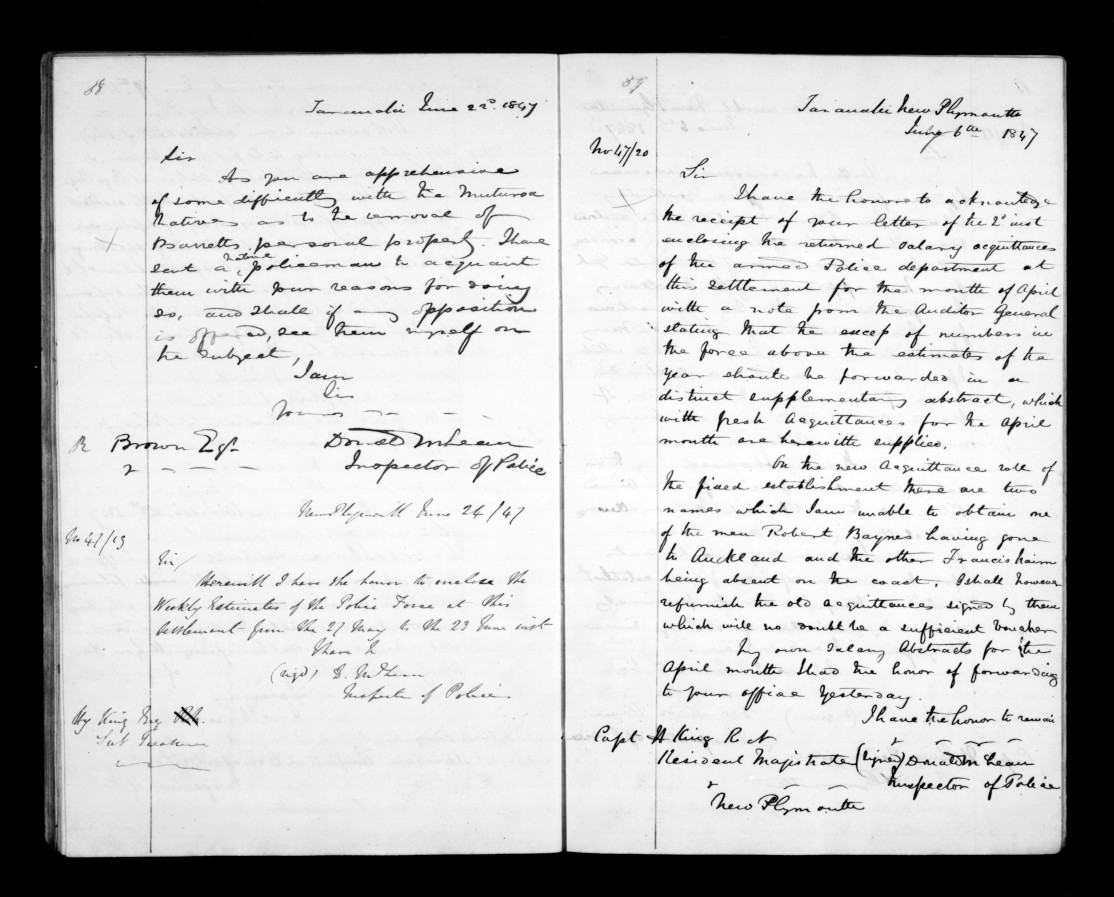 88
Taranaki June 22d. 1847
Sir
As you are apprehensive
of some difficulty with the Muturoa
Natives as to the removal of
Barretts, personal property. I have
sent a native policeman to acquaint
them with your reasons for doing
so, and shall if any opposition
is offered, see them myself on
the subject,
I am
Sir
Yours
R Brown Esqr
Donald McLean
Inspector of Police
New Plymouth June 24/47
No 47/19
Sir/
Herewith I have the honor to enclose the
Weekly Estimates of the Police Force at this
Settlement from the 27 May to the 23 June inst
I have &c
(sigd) D. McLean
Inspector of Police
Hy King Esq
Sub Treasurer
89
Taranaki New Plymouth
July 6th 1847
No 47/20
Sir
I have the honor to acknowledge
the receipt of your letter of the 2d inst
enclosing the returned salary acquittances
of the armed Police department at
this settlement for the month of April
with a note from the Auditor General
stating that the excess of numbers in
the force above the estimates of the
year should be forwarded in a
distinct supplementary abstract, which
with fresh Acquittances for the April
month are herewith supplied.
On the new Acquittance roll of
the fixed establishment there are two
names which I am unable to obtain one
of the men Robert Baynes having gone
to Auckland and the other Francis
being absent on the coast. I shall however
refurnish the old acquittances signed by them
which will no doubt be a sufficient voucher
My own Salary Abstracts for the
April month I had the honor of forwarding
to your office yesterday.
I have the honor to remain
Capt H King R N
Resident Magistrate (signed) Donald McLean
Inspector of Police
New Plymouth